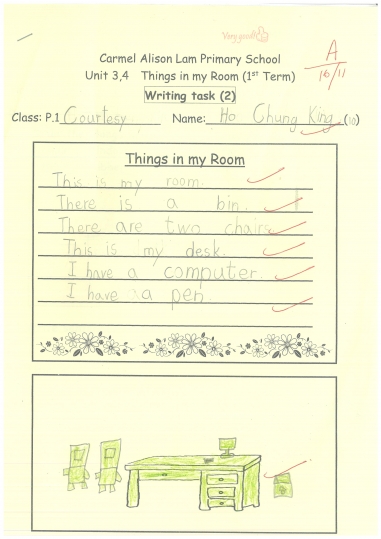 Very good!
A
16/11
Carmel Alison Lam Primary School
Unit 3,4 Things in my Room (1st Term)
Writing task (2)
Class: P.1 Courtesy Name: Ho Chung King (10)
Things in my Room
This is my room.
There is a bin.
There are two chairs.
This is my desk.
I have a computer.
I have a pen.